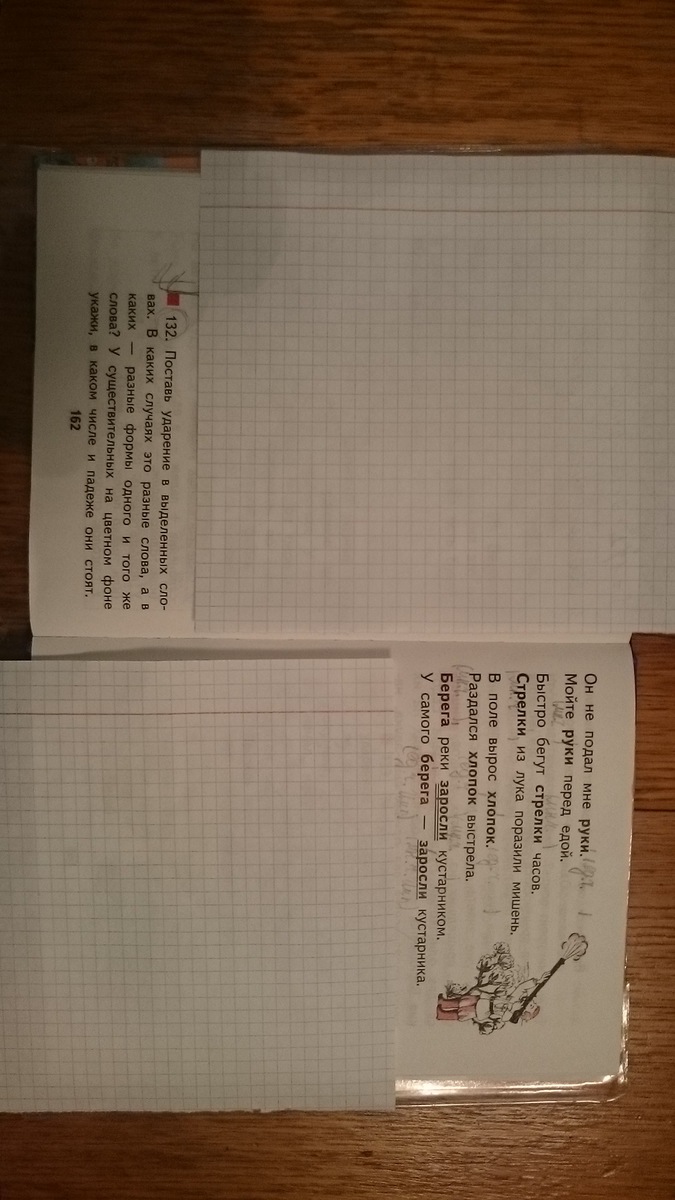 132. Поставь ударение в выделенных сло-
вах. В каких случаях это разные слова, а в
каких — разные формы одного и того же
слова? У существительных на цветном фоне
укажи, в каком числе и падеже они стоят.
162
Он не подал мне руки.
Мойте руки перед едой.
Быстро бегут стрелки часов.
Стрелки из лука поразили мишень.
В поле вырос хлопок.
Раздался хлопок выстрела.
Берега реки заросли кустарником.
У самого берега — заросли кустарника.